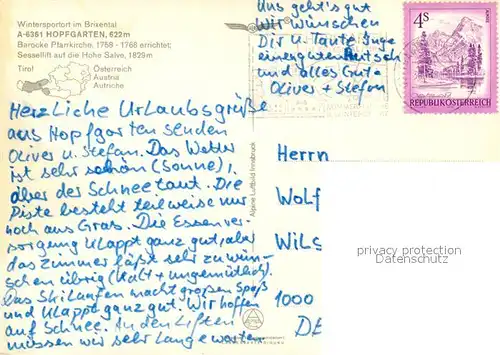 Wintersportort im Brixental
A-6361 HOPFGARTEN, 622m
Barocke Pfarrkirche, 1758 - 1768 errichtet;
Sessellift auf die Hohe Salve, 1829m
Tirol
Österreich
Austria
Autriche
Herzliche Urlaubsgrüße
aus Hopfgarten senden
Oliver u. Stefan. Das Wetter
ist sehr schön (Sonne),
aber der Schnee taut. Die
Piste besteht teilweise nur
noch aus Gras. Die Essenver-
sorgung klappt ganz gut, aber
das Zimmer läßt sehr zu wün-
schen übrig (kalt + ungemütlich).
Das Skilaufen macht großen Spaß
und klappt ganz gut. Wir hoffen
auf Schnee. In den Liften
müssen wir sehr lange warten.
Alpine Luftbild Innsbruck
Uns geht's gut
Wir wünschen
Dir u. Tante Inge
einen guten Rutsch
und alles Gute
Oliver + Stefan
4S
REPUBLIK ÖSTERREICH
Herrn
Wolf
Wils
1000
DE
privacy protection
Datenschutz